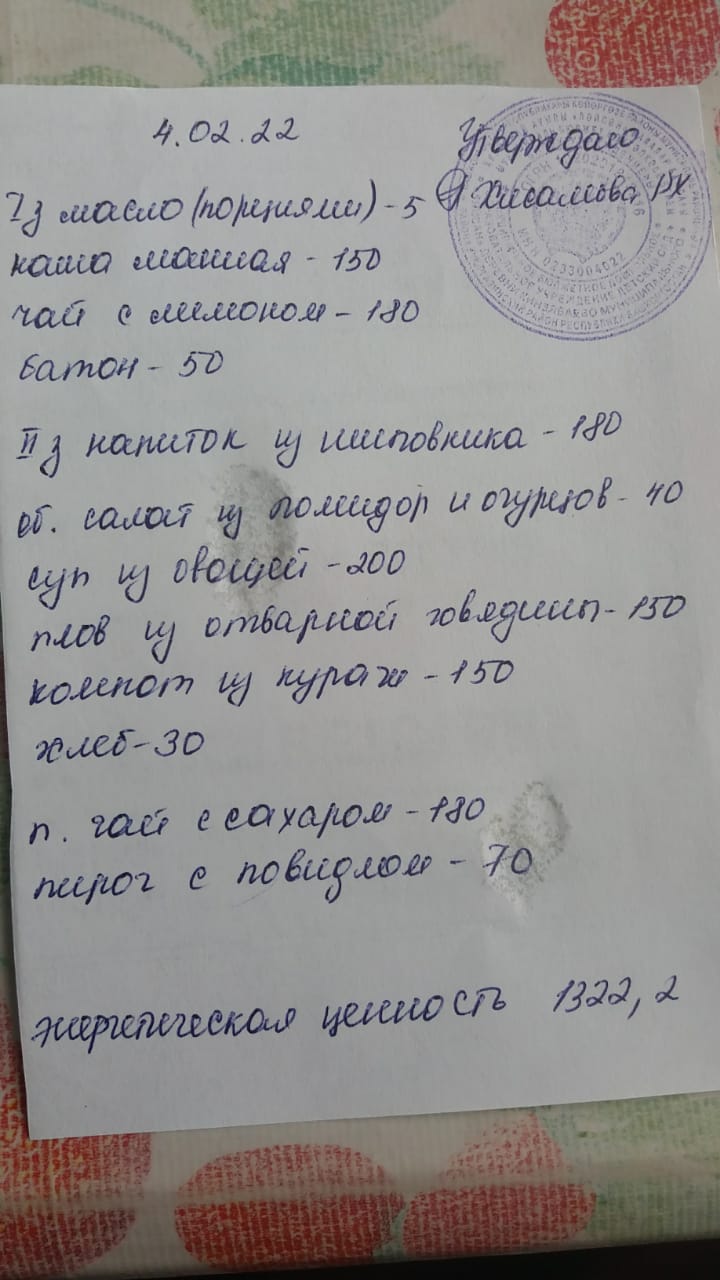 4.02.22
Утверждаю
Хисамова РХ
I з масло (порциями) - 5
каша манная - 150
чай с лимоном - 180
батон - 50
II з напиток из шиповника - 180
об. салат из помидор и огурцов - 40
суп из овощей - 200
плов из отварной говядины - 150
компот из кураги - 150
хлеб - 30
п. чай с сахаром - 180
пирог с повидлом - 70
энергетическая ценность 1322,2